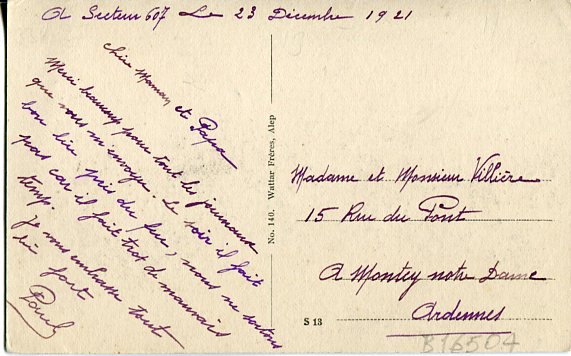 A Secteur 607 Le 23 Décembre 1921
Chère Maman et Papa
Merci beaucoup pour tout les journaux
que vous m'envoye. Le soir il fait
bon lire près du feu, nous ne sortons
pas car il fait trop de mauvais
temp.
Je vous embrasse tout
fort
Paul
No. 140. Wattar Frères, Alep
Madame et Monsieur Villière
15 Rue du Pont
A Montcy notre Dame
Ardennes
S 13
B16504